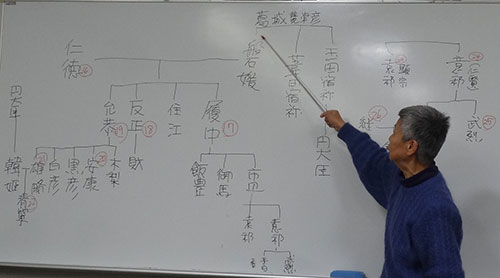 葛城襲津彦
仁徳
⑯
磐媛
葦田宿祢
玉田宿祢
円大臣
円大臣
韓媛
允恭
⑲
反正
⑱
住江
履中
⑰
財
飯豊
御馬
市辺
雄略
㉑
白彦
黒彦
安康
⑳
木梨
清寧
㉒
袁祁
意祁
顕宗
袁祁
㉔
仁賢
意祁
武烈
㉕
㉖